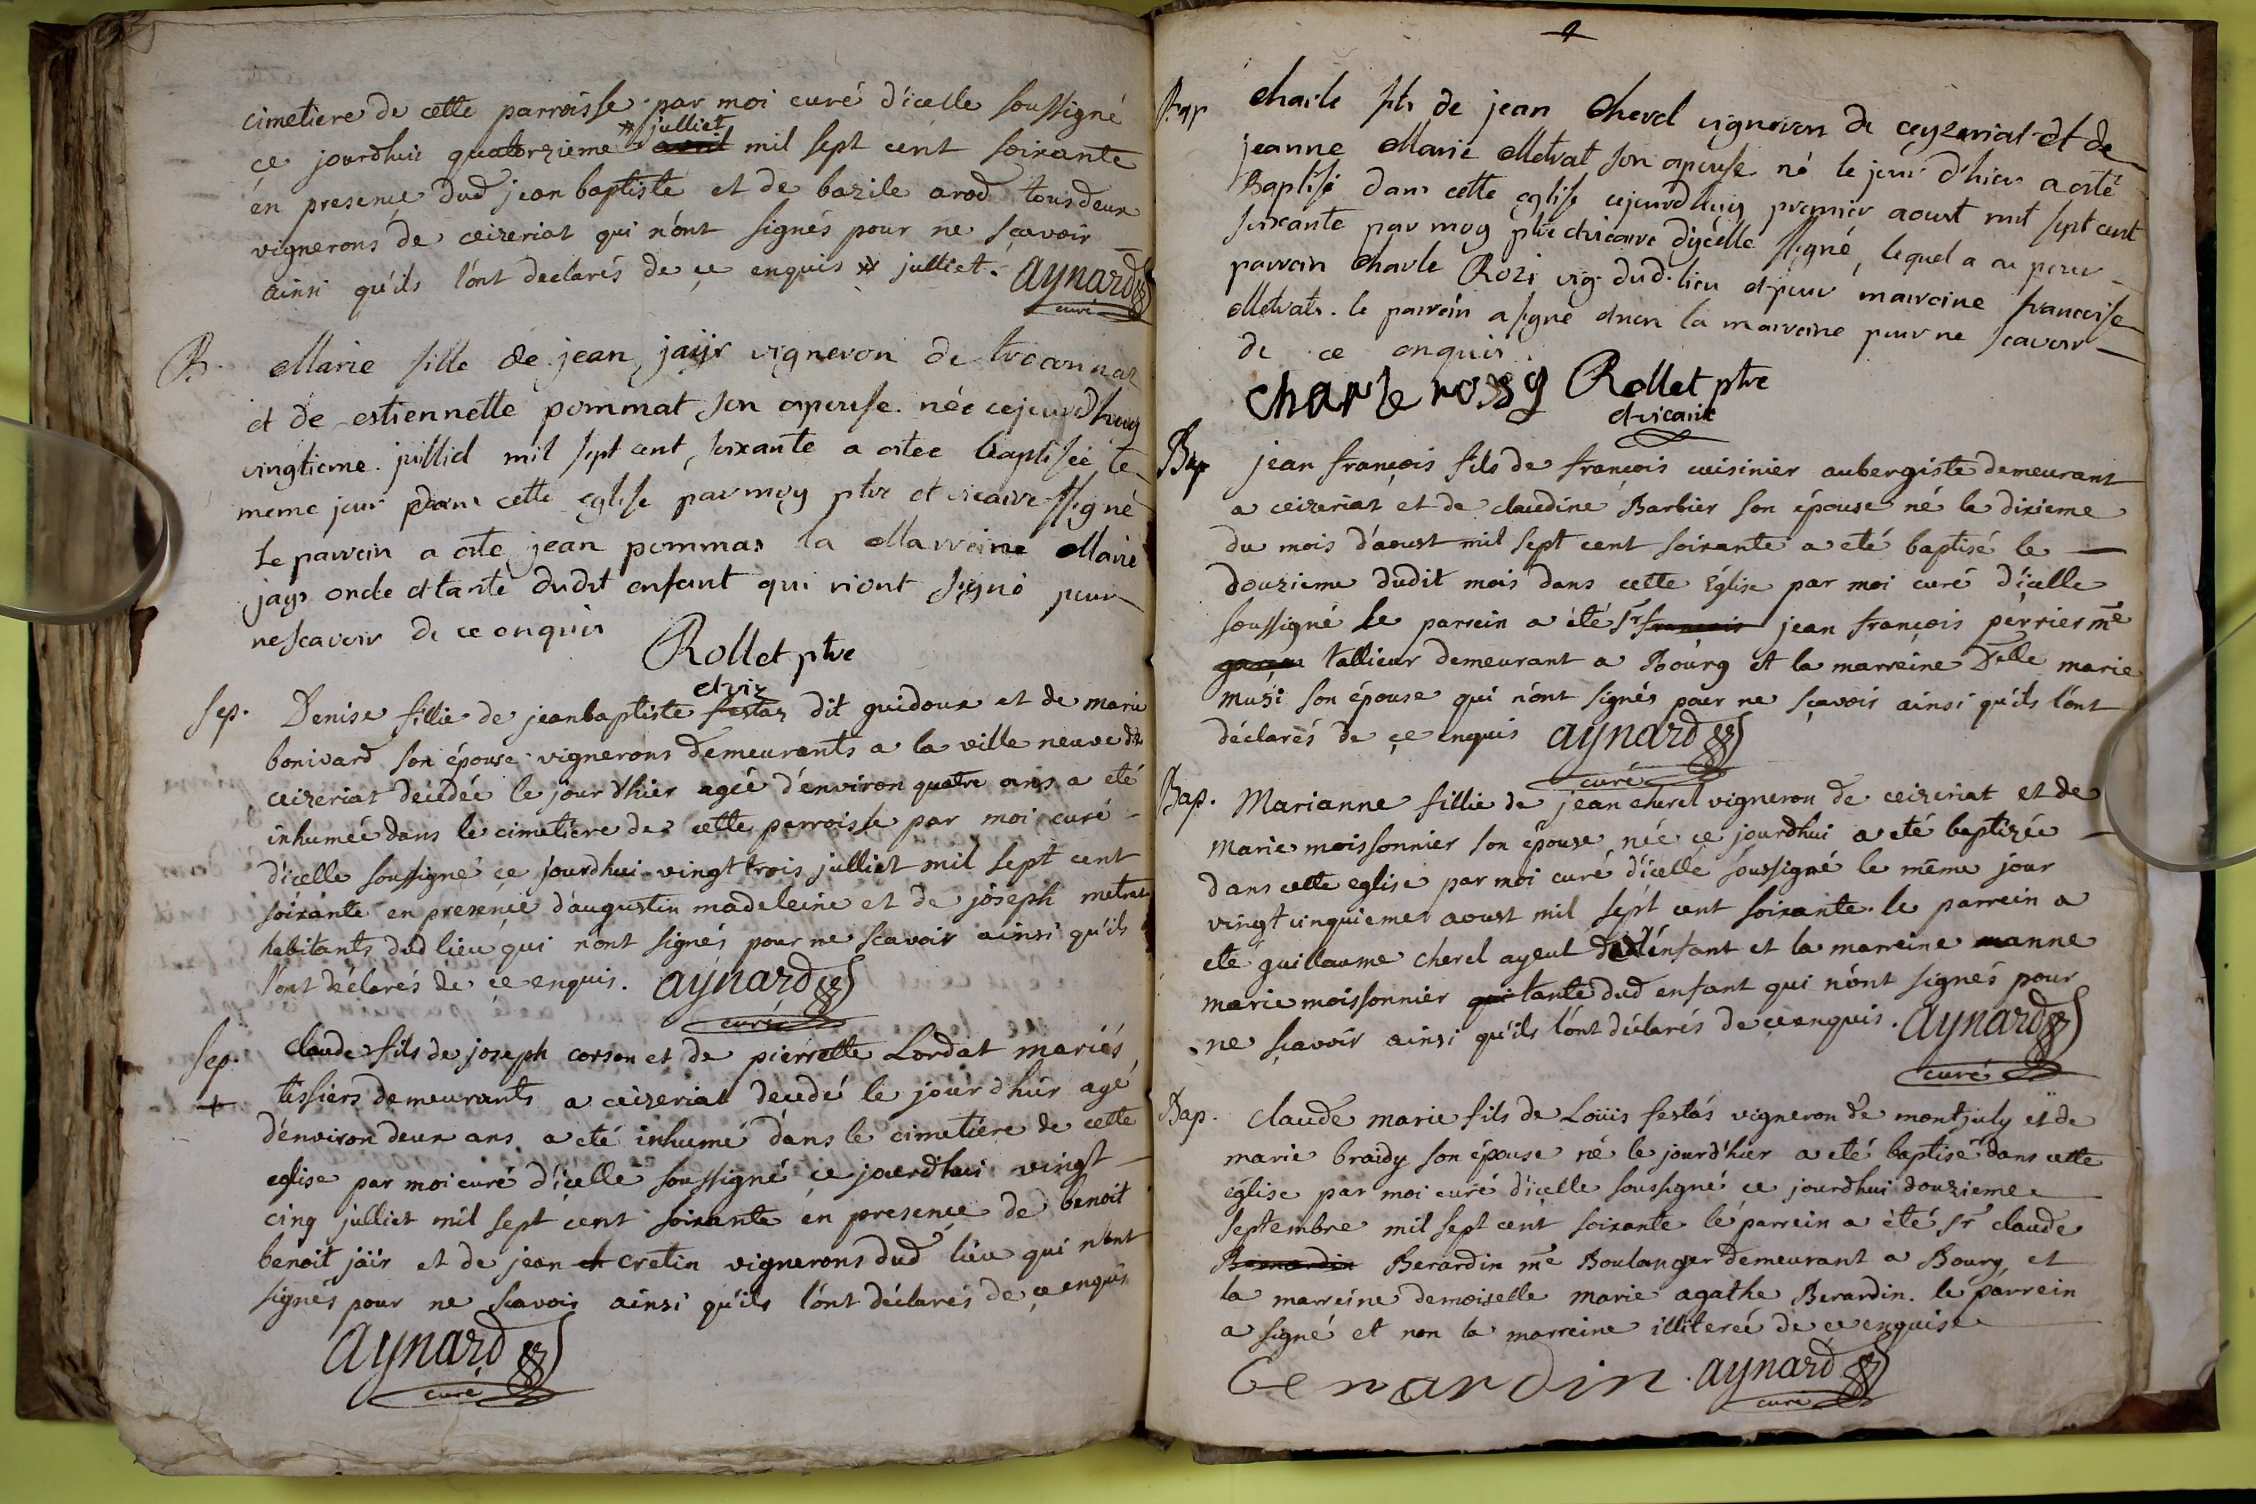 cimetiere de cette parroisse par moi curé d'icelle soussigné
ce jourdhui quatorzieme * julliet avril mil sept cent soixante
en presence dud jean baptiste et de bazile arod tous deux
vignerons de ceizeriat qui n'ont signés pour ne sçavoir
ainsi qu'ils l'ont declarés de ce enquis * julliet. aynard
curé
B. Marie fille de jean jayr vigneron de
et de estiennette pommat son espouse née cejourdhuy
vingtieme juillid mil sept cent soixante a estee baptisée le
meme jour dans cette eglise par moy ptre et vicaire ssigné
le parrein a este jean pommas la Marreine Marie
jays oncle et tante dudit enfant qui n'ont signé pour
ne scavoir de ce enquis
Rollet ptre
et vic
Sep. Denise fillie de jeanbaptiste festas dit guidoux et de marie
bonivard son épouse vignerons demeurants a la ville neuve de
ceizeriat decedée le jour d'hier agée d'environ quatre ans a eté
inhumée dans le cimetiere de cette parroisse par moi curé
d'icelle soussigné ce jourdhui vingt trois julliet mil sept cent
soixante en presence d'augustin madeleine et de joseph metrat
habitants dud lieu qui n'ont signés pour ne scavoir ainsi qu'ils
l'ont déclarés de ce enquis. aynard
curé
Sep. claude fils de joseph corson et de pierrette Lordat mariés
+ tissiers demeurants a ceizeriat decedé le jour d'hier agé
d'environ deux ans a eté inhumé dans le cimetiere de cette
eglise par moi curé d'icelle soussigné ce jourdhui vingt
cinq julliet mil sept cent soixante en presence de benoit
benoit jäir et de jean ch cretin vignerons dud lieu qui n'ont
signés pour ne sçavoir ainsi qu'ils l'ont déclarés de ce enquis
aynard
curé
Bap charle fils de jean Cherel vigneron de ceyzeriat et de
jeanne Marie Metrat son espouse né le jour d'hier a esté
Baptisé dans cette eglise cejourdhuy premier aoust mil sept cent
soixante par moy ptre et vicaire d'ycelle ssigné, lequel a eu pour
parrain charle Rozi vig. dud. lieu et pour marreine francoise
Metrat. le parrein a signé et non la marreine pour ne scavoir
de ce enquis.
charle rossy Rollet ptre
et vicaire
Bap jean françois fils de françois cuisinier aubergiste demeurant
a ceizeriat et de claudine Barbier son épouse né le dixieme
du mois d'aoust mil sept cent soixante a eté baptisé le
douzieme dudit mois dans cette Eglise par moi curé d'icelle
soussigné le parrein a été Sr françois jean françois perrier me
tallieur demeurant a Bourg et la marreine Delle marie
musi son épouse qui n'ont signés pour ne sçavoir ainsi qu'ils l'ont
déclarés de ce enquis aynard
curé
Bap. Marianne fillie de jean cherel vigneron de ceizeriat et de
marie moissonnier son épouse née ce jourdhui a eté baptizée
dans cette eglise par moi curé d'icelle soussigné le même jour
vingt cinquieme aoust mil sept cent soixante. le parrein a
eté guillaume cherel ayeul de l'enfant et la marreine manne
marie moissonnier qui tante dud enfant qui n'ont signés pour
ne sçavoir ainsi qu'ils l'ont déclarés de ce enquis. aynard
curé
Bap. claude marie fils de Loüis festas vigneron de montjuly et de
marie braidy son épouse né le jourd'hier a eté baptisé dans cette
église par moi curé d'icelle soussigné ce jourdhui douzieme
septembre mil sept cent soixante le parrein a été Sr claude
Bernardin Berardin me Boulanger demeurant a Bourg, et
la marreine demoiselle marie agathe Berardin. le parrein
a signé et non la marreine illiterée de ce enquise
aynard
curé